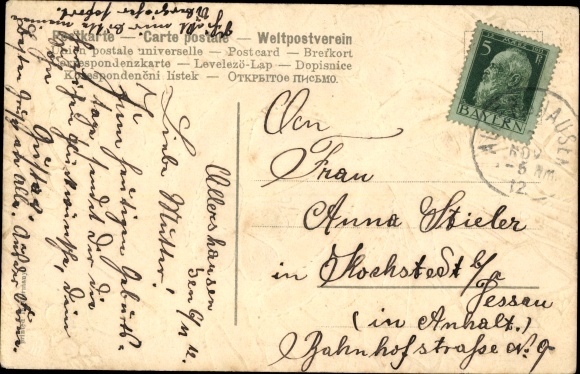 Postkarte — Carte postale — Weltpostverein
Union postale universelle — Postcard — Brefkort
Correspondenzkarte — Levelező-Lap — Dopisnice
Korespondenční lístek — Открытое письмо.
5 Pf
BAYERN
HAUSEN
NOV
5 NM
12
An
Frau
Anna Stieler
in Hochstedt b/
Dessau
(in Anhalt.)
Bahnhofstraße No. 9
Allershausen
den 6/11 12.
Liebe Mutter!
Zum heutigen Geburts-
tage sendet Dir die
herzlichsten Glückwünsche, Dein
Sohn
Gustav.
Besten Gruß an alle.